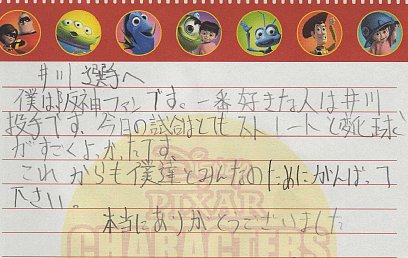 井川選手へ
僕は阪神ファンです。一番好きな人は井川
投手です。今日の試合はとてもストレートと変化球
がすごくよかったです。
これからも僕達とみんなのためにがんばって
下さい。
本当にありがとうございました
PIXAR
CHARACTERS